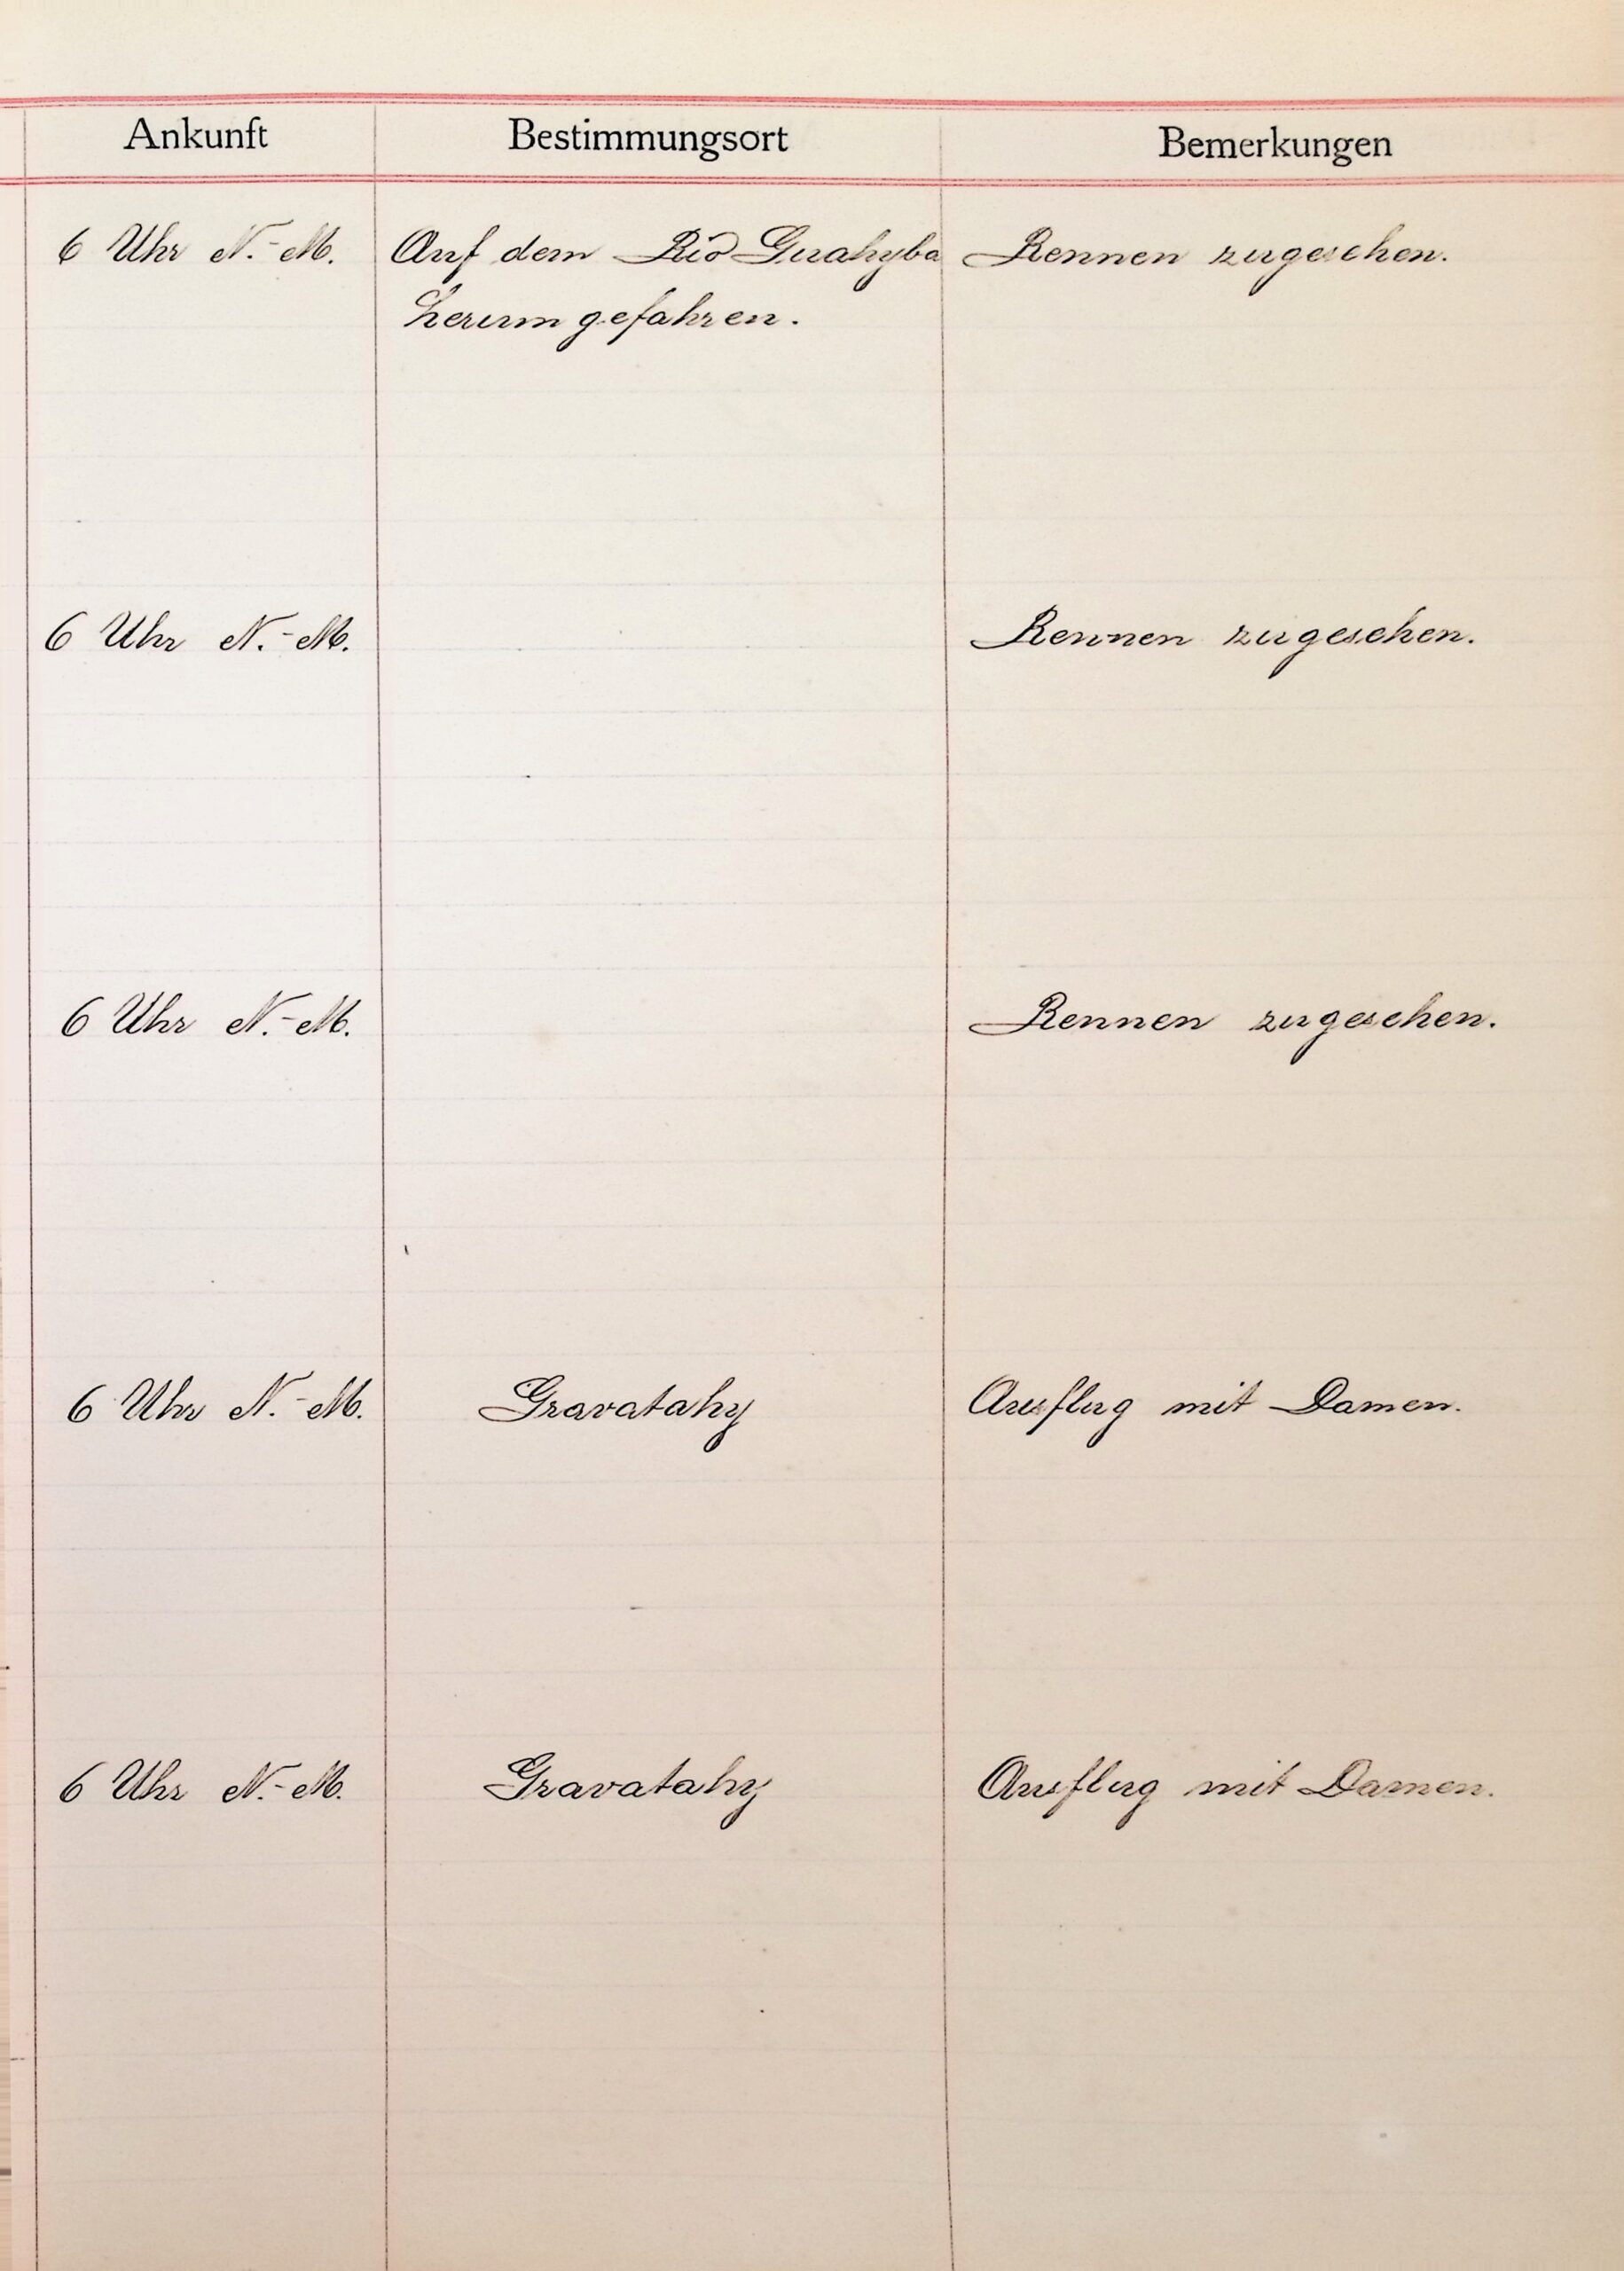 Ankunft Bestimmungsort Bemerkungen
6 Uhr N.-M. Auf dem Rio Guahyba Rennen zugesehen.
herumgefahren.
6 Uhr N.-M. Rennen zugesehen.
6 Uhr N.-M. Rennen zugesehen.
6 Uhr N.-M. Gravatahy Ausflug mit Damen.
6 Uhr N.-M. Gravatahy Ausflug mit Damen.